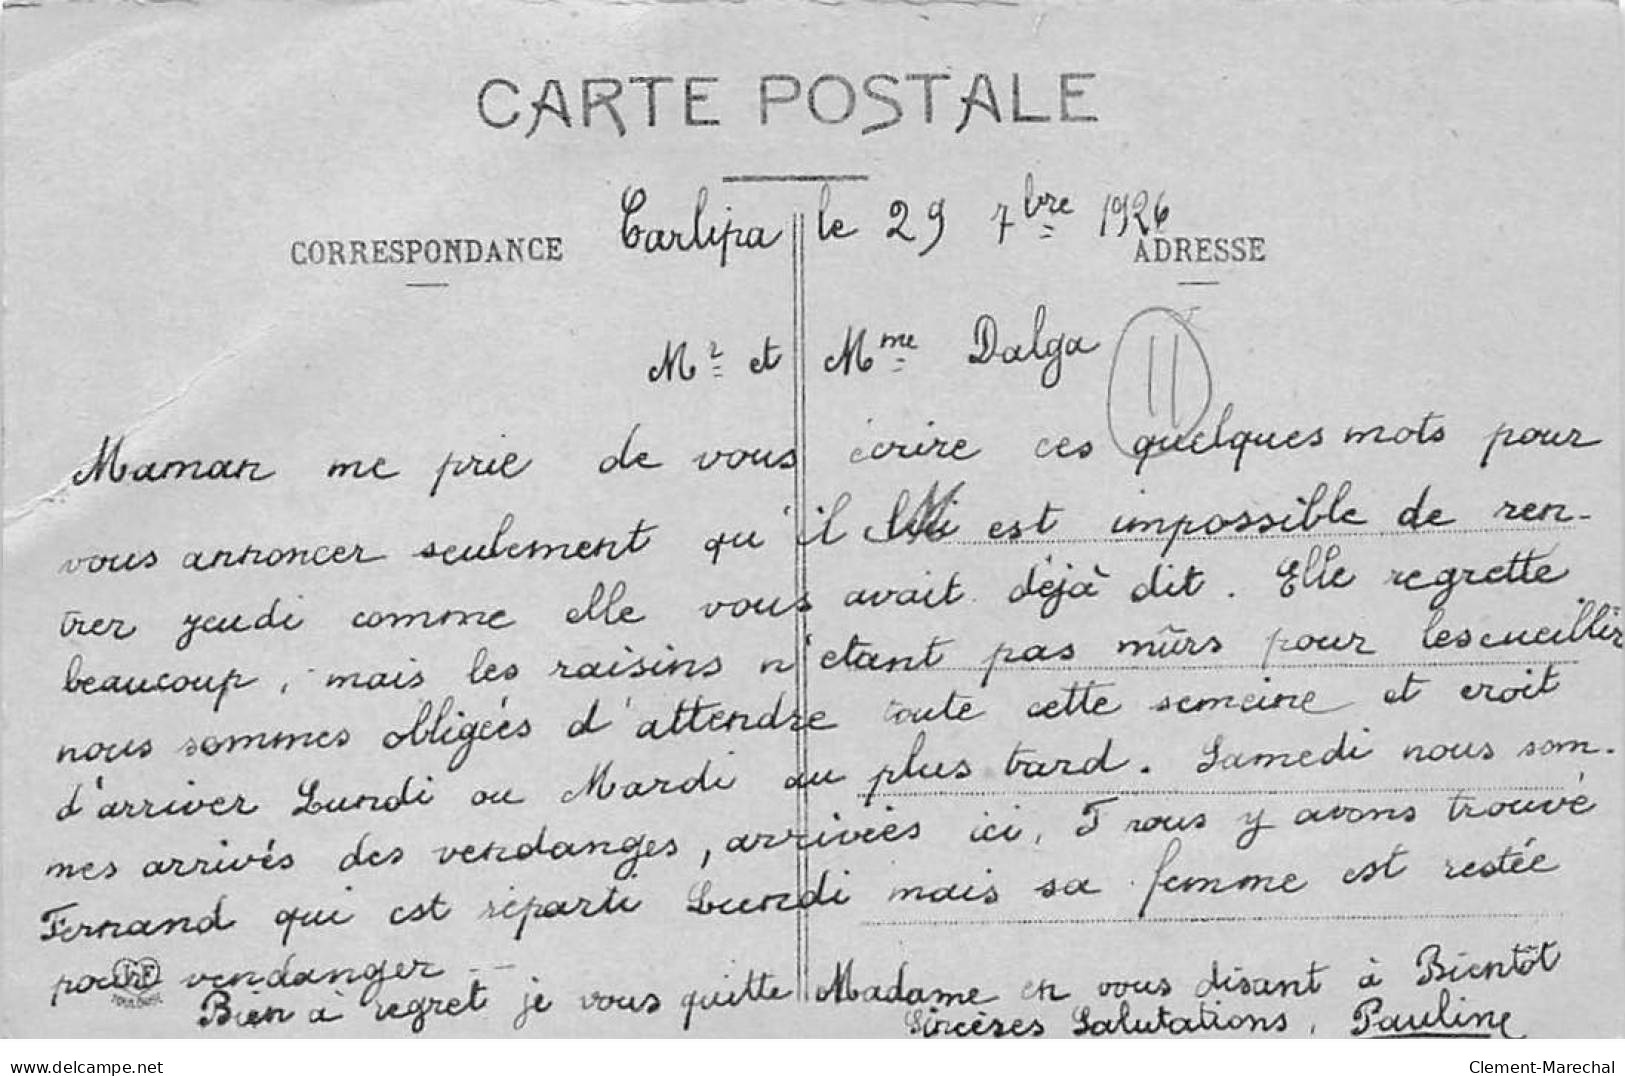 CARTE POSTALE
CORRESPONDANCE
ADRESSE
Carlipa le 29 7bre 1926
Mr et Mme Dalga
11
Maman me prie de vous écrire ces quelques mots pour
vous annoncer seulement qu'il lui est impossible de ren-
trer jeudi comme elle vous avait déjà dit. Elle regrette
beaucoup, mais les raisins n'étant pas mûrs pour les cueillir
nous sommes obligées d'attendre toute cette semeine et croit
d'arriver Lundi ou Mardi au plus tard. Samedi nous som-
mes arrivés des vendanges, arrivées ici, nous y avons trouvé
Fernand qui est réparti Lundi mais sa femme est restée
pour vendanger
Bien à regret je vous quitte Madame en vous disant à Bientôt
Sincères Salutations, Pauline
TOULOUSE
www.delcampe.net
Clement-Marechal